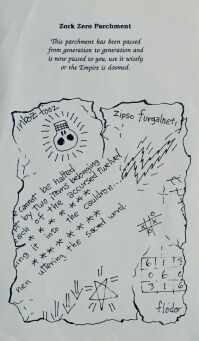 Zork Zero Parchment
This parchment has been passed
from generation to generation and
is now passed to you, use it wisely
or the Empire is doomed.
zipso furgalneti
cannot be halted
by two items belonging
each of the accursed twelve!
* * * * * *
ing it into the cauldron...
* * * * * * *
hen uttering the sacred word.
0 6
3 1 6
flodor